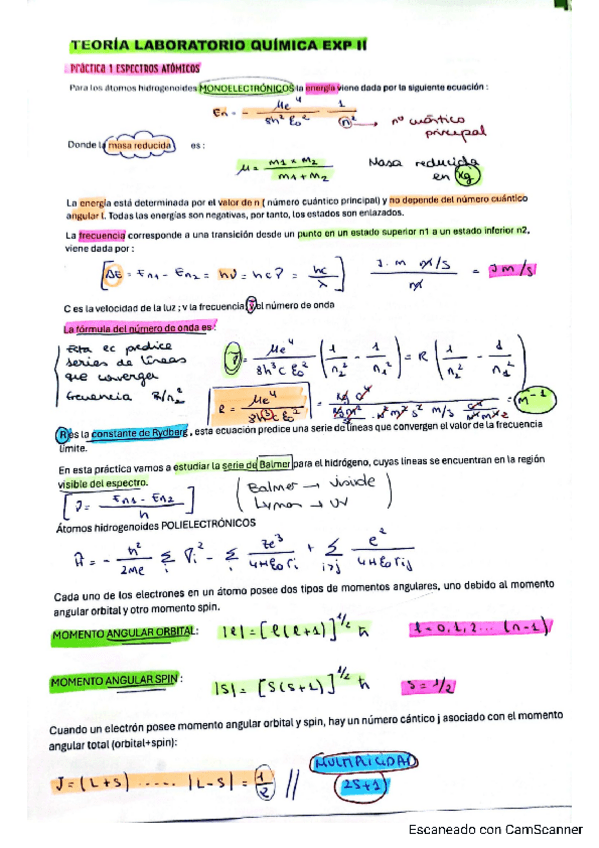 TEORÍA LABORATORIO QUÍMICA EXP II
PRÁCTICA 1 ESPECTROS ATÓMICOS
Para los átomos hidrogenoides MONOELECTRÓNICOS la energía viene dada por la siguiente ecuación :
En = - μe⁴ / 8h² ε₀² · 1 / n² → nº cuántico principal
Donde la masa reducida es :
μ = m1 x m2 / m1 + m2 Masa reducida en kg
La energía está determinada por el valor de n ( número cuántico principal) y no depende del número cuántico
angular l. Todas las energías son negativas, por tanto, los estados son enlazados.
La frecuencia corresponde a una transición desde un punto en un estado superior n1 a un estado inferior n2,
viene dada por :
[ΔE = En1 - En2 = hν = hcν̃ = hc / λ] J . m m/s / m = J m/s
C es la velocidad de la luz ; v la frecuencia, ṽ el número de onda
La fórmula del número de onda es :
Esta ec predice
series de líneas
que convergen
frecuencia R/n₂²
ν̃ = μe⁴ / 8h³c ε₀² (1/n₂² - 1/n₁²) = R (1/n₂² - 1/n₁²)
R = μe⁴ / 8h³c ε₀² = m⁻¹
R es la constante de Rydberg , esta ecuación predice una serie de líneas que convergen el valor de la frecuencia
límite.
En esta práctica vamos a estudiar la serie de Balmer para el hidrógeno, cuyas líneas se encuentran en la región
visible del espectro.
[ν = En1 - En2 / h] (Balmer → visible
Lyman → UV)
Átomos hidrogenoides POLIELECTRÓNICOS
Ĥ = - ħ² / 2me Σi ∇i² - Σi Ze³ / 4πε₀ri + Σi>j e² / 4πε₀rij
Cada uno de los electrones en un átomo posee dos tipos de momentos angulares, uno debido al momento
angular orbital y otro momento spin.
MOMENTO ANGULAR ORBITAL: |l| = [l(l+1)]^1/2 ħ l = 0, 1, 2 ... (n-1)
MOMENTO ANGULAR SPIN : |S| = [S(S+1)]^1/2 ħ s = 1/2
Cuando un electrón posee momento angular orbital y spin, hay un número cántico j asociado con el momento
angular total (orbital+spin):
J = (L+S) ..... |L-S| = 1/2 // MULTIPLICIDAD
2S+1
Escaneado con CamScanner